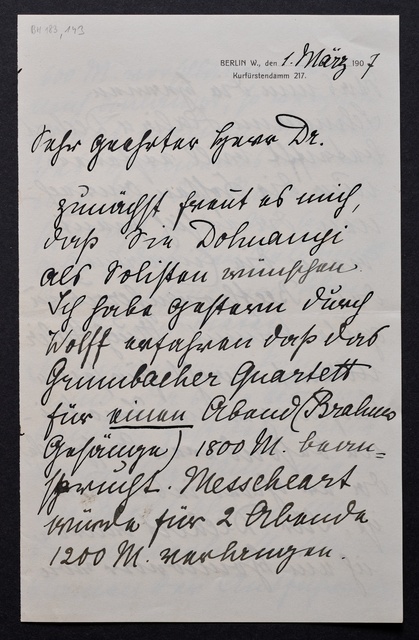 BERLIN W., den 1. März 1907
Kurfürstendamm 217.
Sehr geehrter Herr Dr.
zunächst freut es mich,
daß Sie Dohnanyi
als Solisten wünschen.
Ich habe gestern durch
Wolff erfahren daß das
Grumbacher Quartett
für einen Abend (Brahms
Gesänge) 1800 M. bean=
sprucht. Messchaert
würde für 2 Abende
1200 M. verlangen.